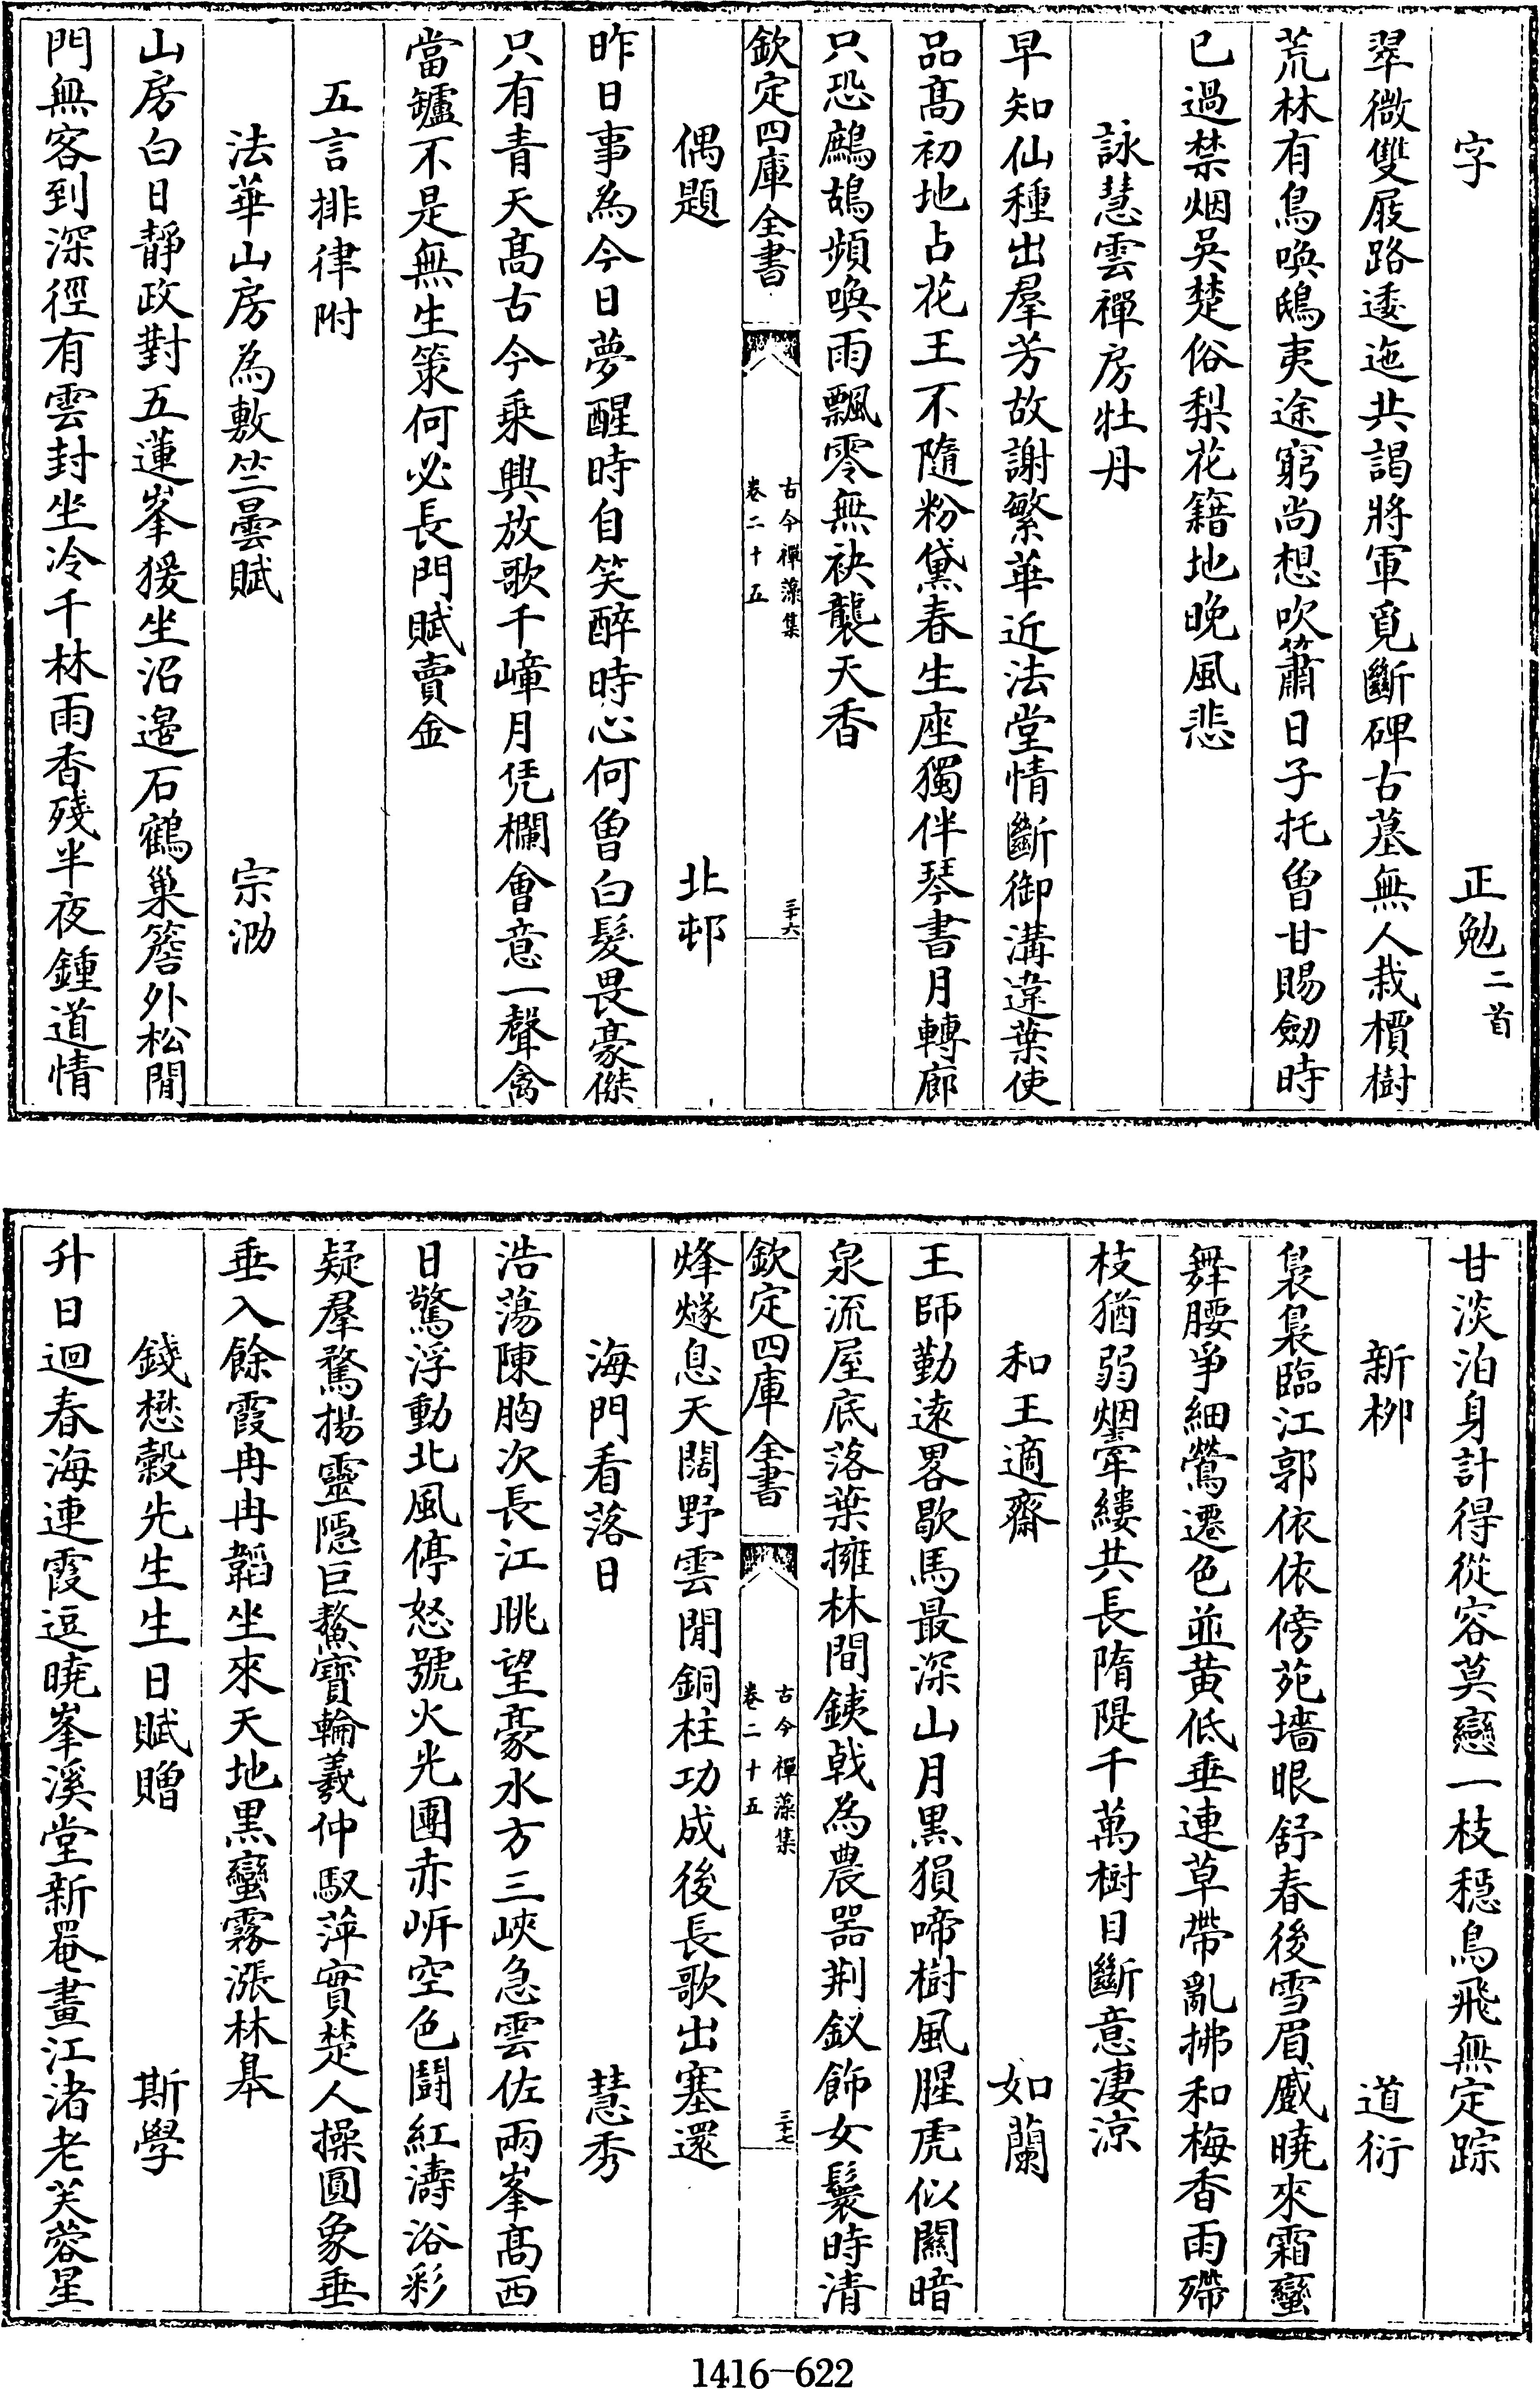 字　正勉二首
翠微雙屐路逶迤共謁將軍覓斷碑古墓無人栽檟樹
荒林有鳥喚鴟夷途窮尚想吹簫日子托曾甘賜劒時
已過禁烟吳楚俗梨花籍地晚風悲
詠慧雲禪房牡丹
早知仙種出羣芳故謝繁華近法堂情斷御溝違葉使
品髙初地占花王不隨粉黛春生座獨伴琴書月轉廊
只恐鷓鴣頻喚雨飄零無袂襲天香
欽定四庫全書　古今禪藻集　卷二十五　三十六
偶題　北邨
昨日事為今日夢醒時自笑醉時心何曾白髮畏豪傑
只有青天髙古今乘興放歌千嶂月凭欄會意一聲禽
當鑪不是無生策何必長門賦賣金
五言排律附
法華山房為敷竺曇賦　宗泐
山房白日靜政對五蓮峯猨坐沼邉石鶴巢簷外松閒
門無客到深徑有雲封坐冷千林雨香殘半夜鍾道情
甘淡泊身計得從容莫戀一枝穏鳥飛無定踪
新柳　道衍
裊裊臨江郭依依傍苑墻眼舒春後雪眉蹙曉來霜蠻
舞腰爭細鶯遷色並黄低垂連草帶亂拂和梅香雨殢
枝猶弱烟牽縷共長隋隄千萬樹目斷意淒涼
和王適齋　如蘭
王師勤逺畧歇馬最深山月黒猿啼樹風腥虎似闗暗
泉流屋底落葉擁林間銕戟為農器荆釵飾女鬟時清
欽定四庫全書　古今禪藻集　卷二十五　三十七
烽燧息天闊野雲閒銅柱功成後長歌出塞還
海門看落日　慧秀
浩蕩陳胸次長江眺望豪水方三峽急雲佐兩峯髙西
日驚浮動北風停怒號火光團赤岍空色鬭紅濤浴彩
疑羣鶩揚靈隠巨鰲寶輪羲仲馭萍實楚人操圓象垂
垂入餘霞冉冉韜坐來天地黒蠻霧漲林臯
錢懋穀先生生日賦贈　斯學
升日迴春海連霞逗曉峯溪堂新罨畫江渚老芙蓉星
1416-622